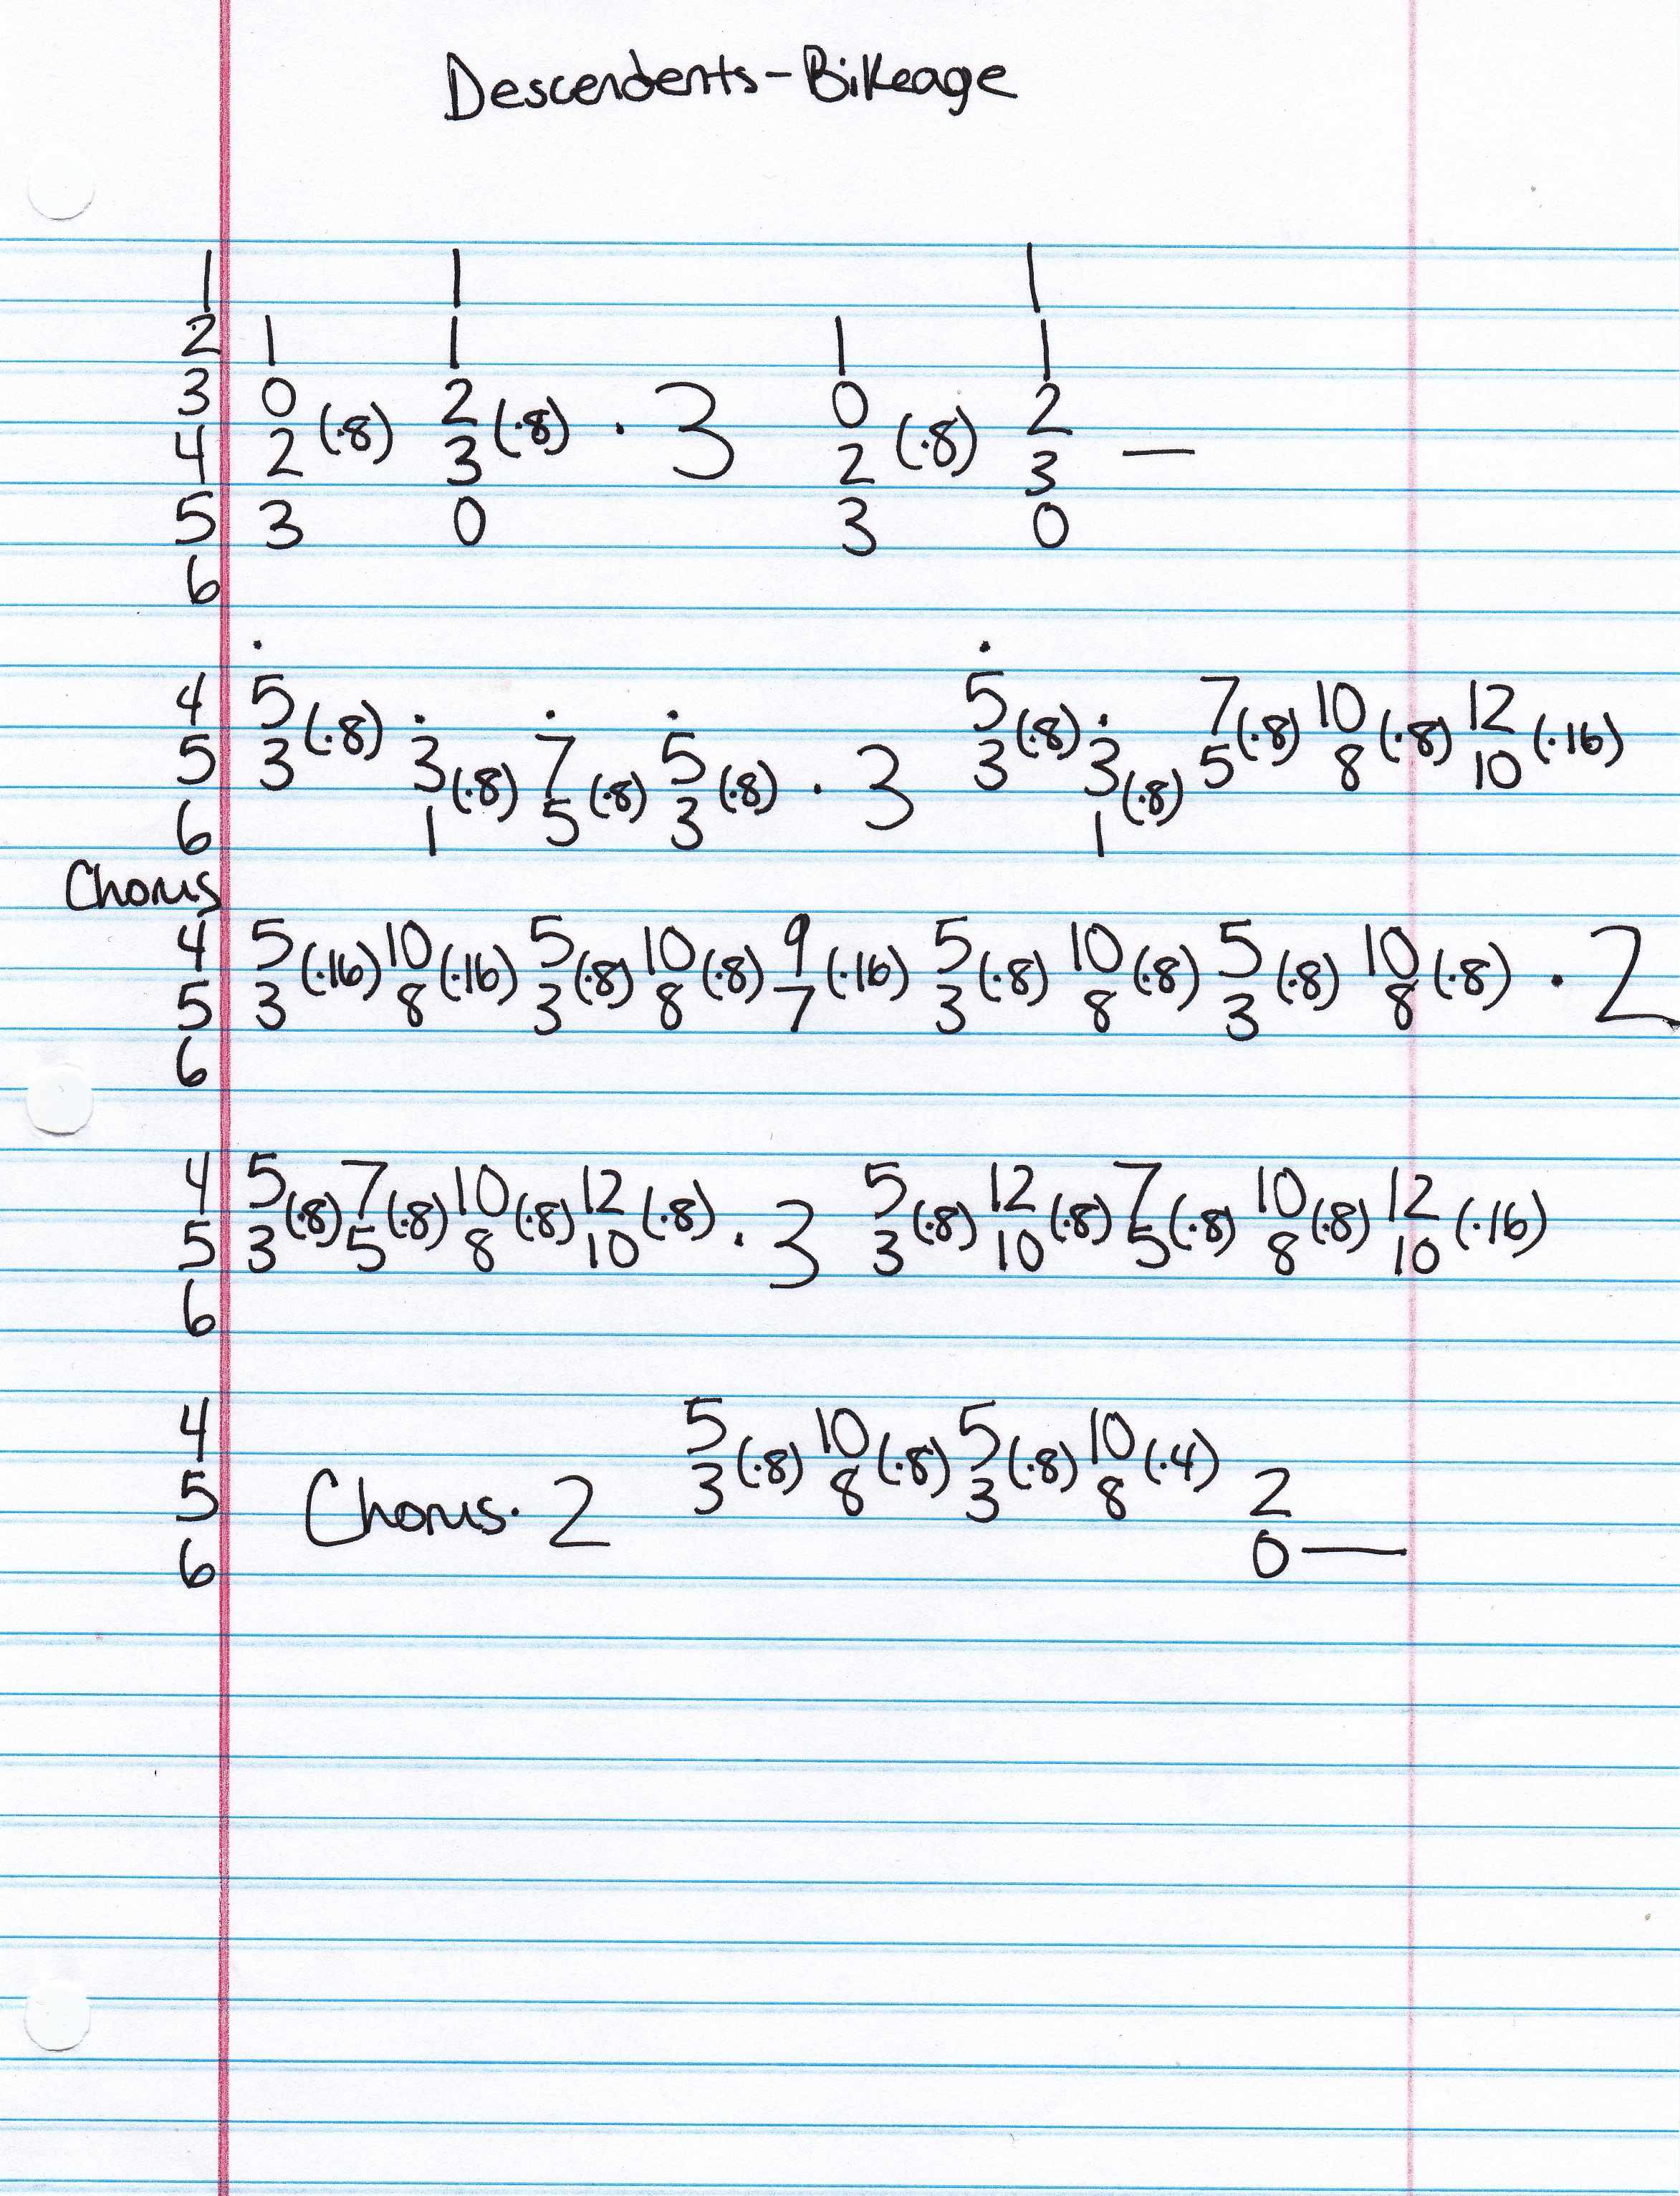 Descendents - Bikeage
1 1 1
2 1 1 1 1
3 0 (·8) 2 (·8) · 3 0 (·8) 2
4 2 3 2 3 —
5 3 0 3 0
6
4 5 (·8) 5 (·8) 7 (·8) 10 (·8) 12 (·16)
5 3 3 (·8) 7 (·8) 5 (·8) · 3 3 3 (·8) 5 8 10
6 1 5 3 1
Chorus
4 5 (·16) 10 (·16) 5 (·8) 10 (·8) 9 (·16) 5 (·8) 10 (·8) 5 (·8) 10 (·8) · 2
5 3 8 3 8 7 3 8 3 8
6
4 5 (·8) 7 (·8) 10 (·8) 12 (·8) · 3 5 (·8) 12 (·8) 7 (·8) 10 (·8) 12 (·16)
5 3 5 8 10 3 10 5 8 10
6
4 5 (·8) 10 (·8) 5 (·8) 10 (·4)
5 Chorus · 2 3 8 3 8 2
6 0 —